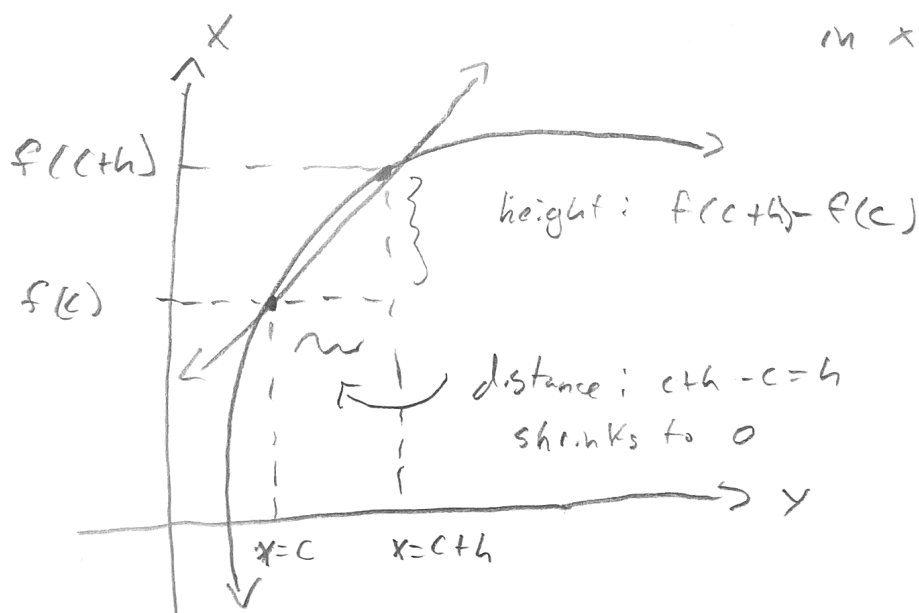 X
in x
f(c+h)
height: f(c+h)-f(c)
f(c)
distance: c+h-c=h
shrinks to 0
y
x=c
x=c+h